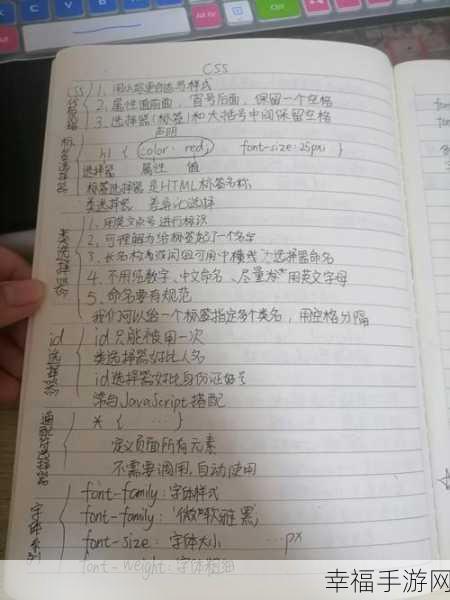 CSS
CSS
1. 用小写更自己写样式
2. 属性值前面,冒号后面,保留一个空格
3. 选择器(标签)和大括号中间保留空格
声明
标签选择器
h1 { color: red; font-size: 25px; }
选择器 属性 值
标签选择器是HTML标签名称,
类选择器
1. 用英文点号进行标识
2. 可理解为给标签起了一个名字
3. 长名称或词组可用中横线"-"选择器命名
4. 不用纯数字、中文命名、尽量用英文字母
5. 命名要有规范
我们可以给一个标签指定多个类名,用空格分隔
id选择器
id只能被用一次
类选择器好比人名
id选择器好比身份证号
常与JavaScript搭配
通配符选择器
* { ... }
定义页面所有元素
不需要调用,自动使用
字体系列
font-family: 字体样式
font-family: '微软雅黑'
font-size: 字体大小 ...px
font-weight: 字体粗细
幸福手游网